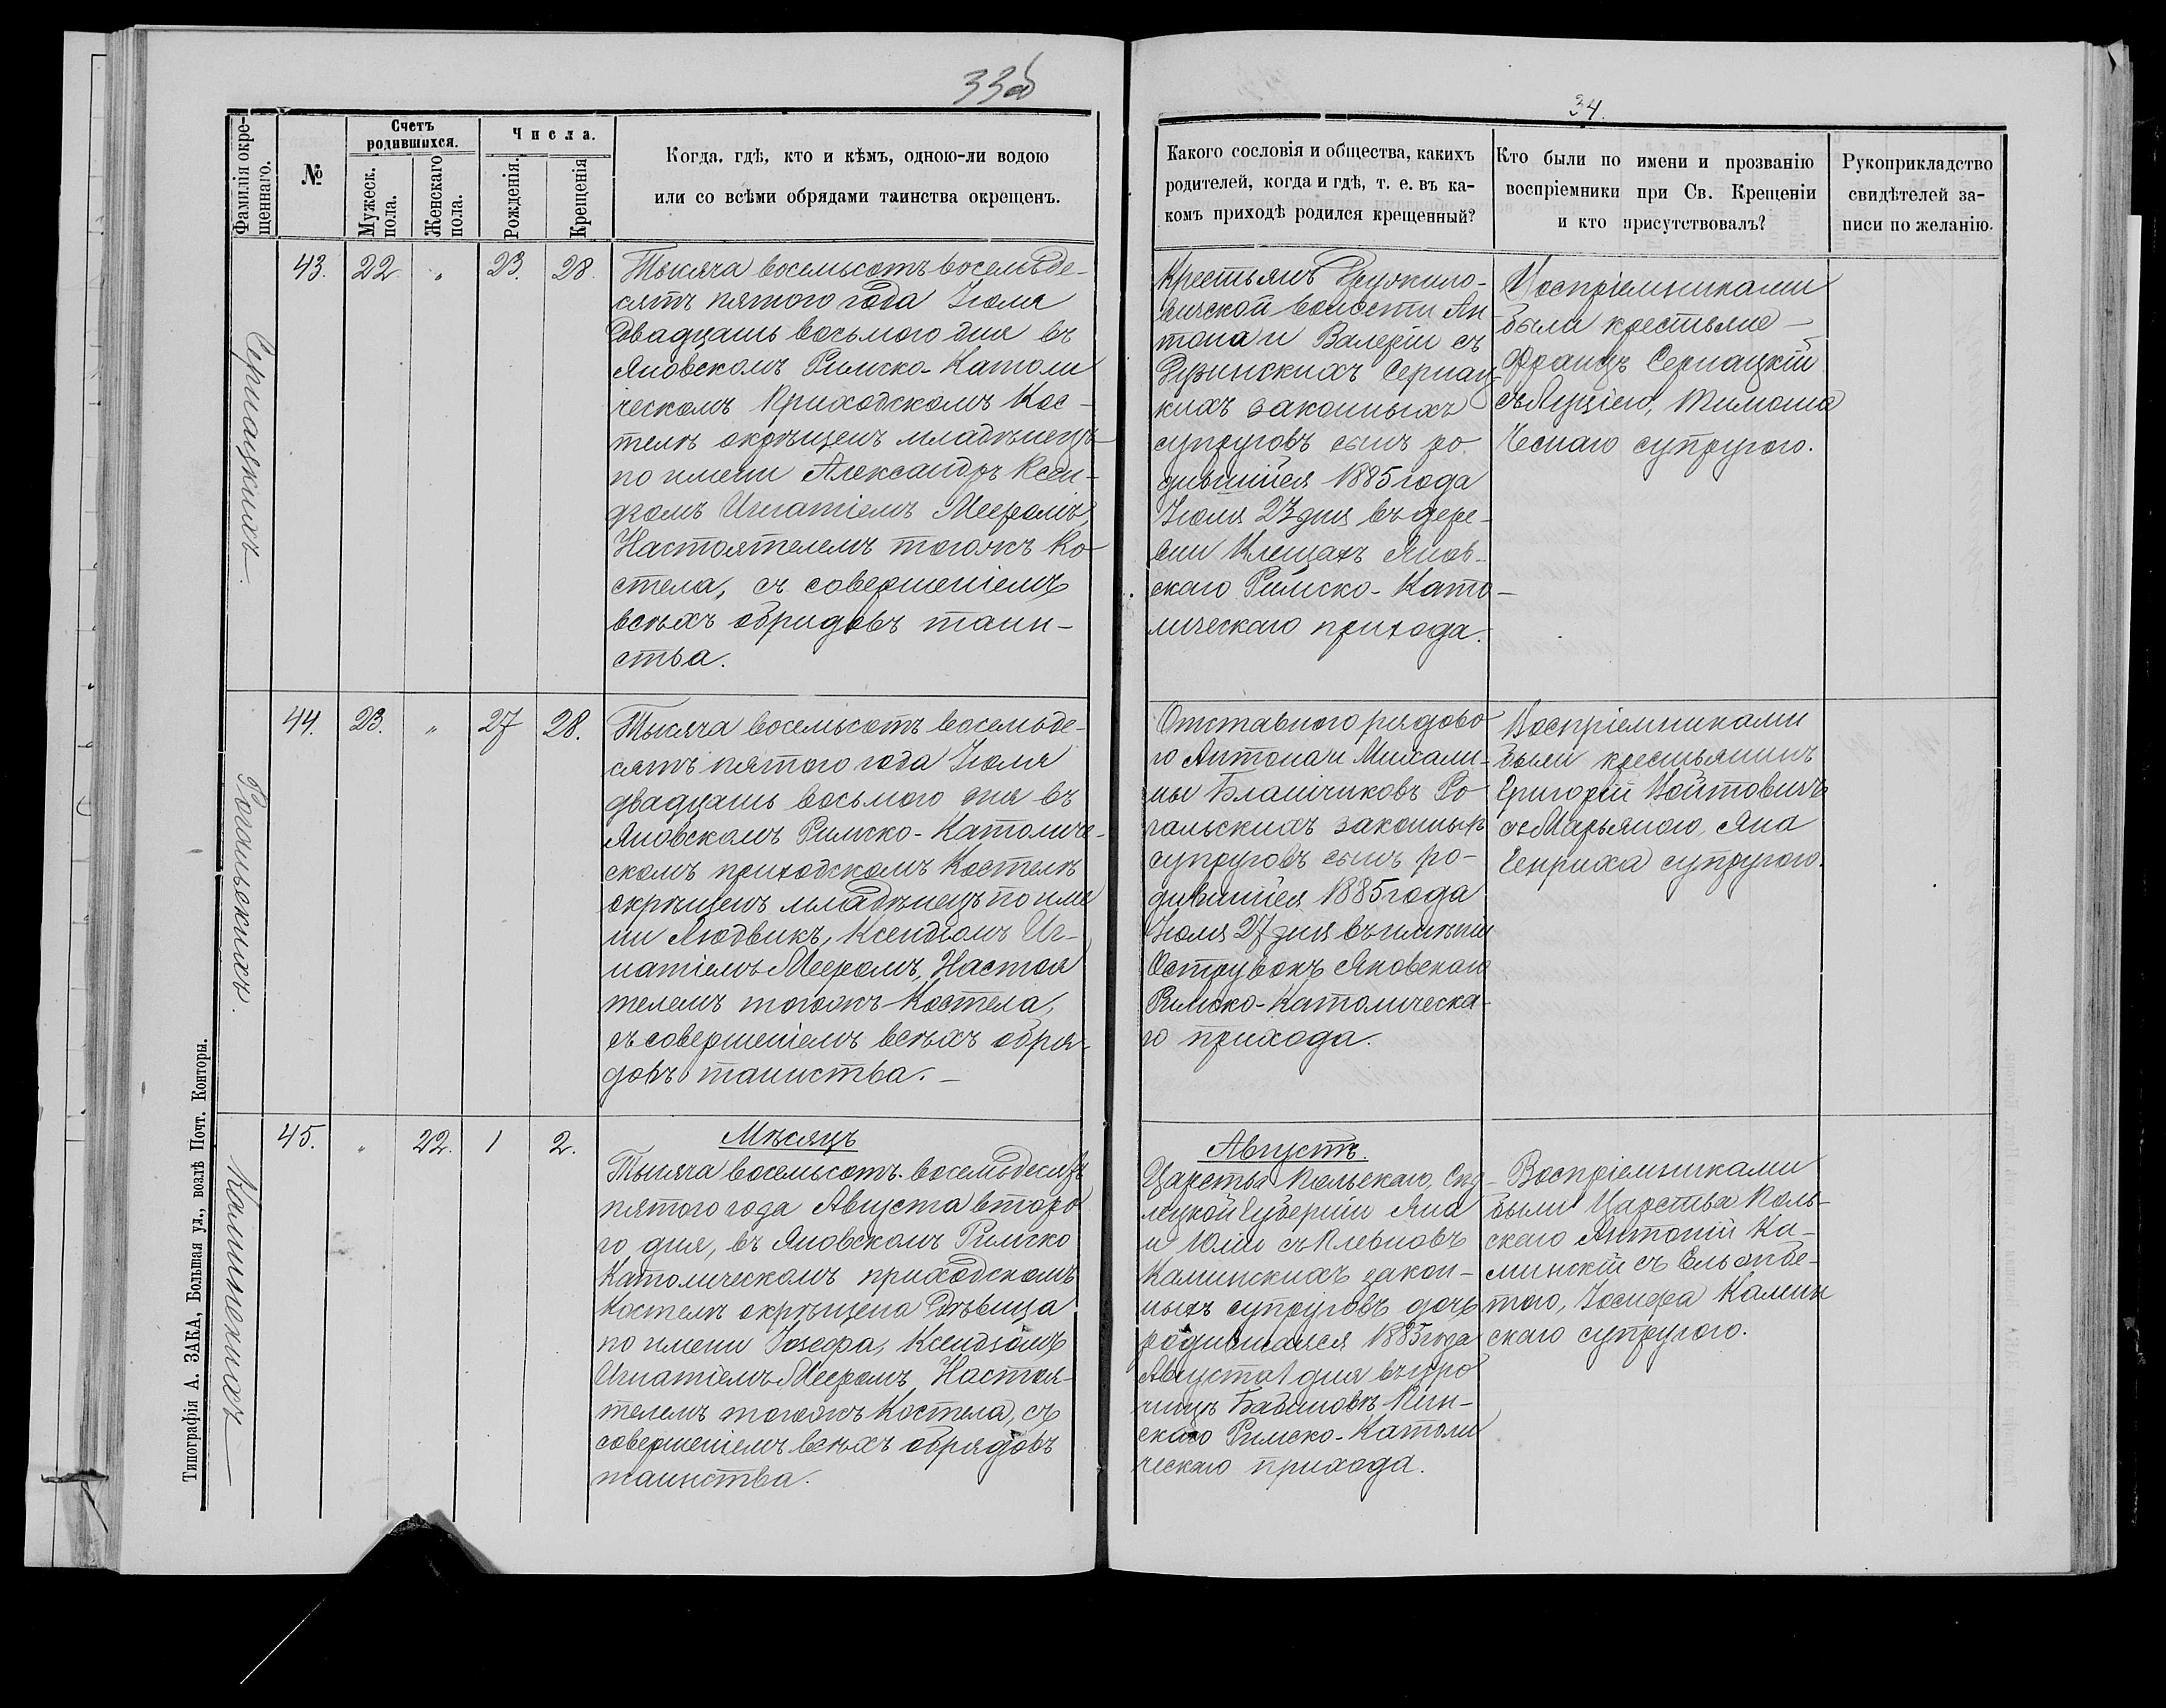 33об
Фамилія окре-
щеннаго.
№
Счетъ
родившихся.
Мужеск.
пола.
Женскаго
пола.
Числа.
Рожденія.
Крещенія
Когда. гдѣ, кто и кѣмъ, одною-ли водою
или со всѣми обрядами таинства окрещенъ.
Серпацкихъ
43. 22 „ 23. 28.
Тысяча восемьсотъ восемьде-
сятъ пятого года Іюля
двадцать восьмого дня въ
Яновскомъ Римско-Католи
ческомъ Приходскомъ Кос-
телѣ окрѣщенъ младѣнецъ
по имени Александръ Ксен-
дзомъ Игнатіемъ
Настоятелемъ тогожъ Ко-
стела, съ совершеніемъ
всѣхъ обридовъ таин-
ства.
Рогальскихъ.
44. 23. „ 27 28.
Тысяча восемьсотъ восемьде-
сятъ пятого года Іюля
двадцать восьмого дня въ
Яновскомъ Римско-Католиче-
скомъ приходскомъ Костелѣ
окрѣщенъ младѣнецъ по име
ни Людвикъ, Ксендзомъ Иг-
натіемъ Меером, Настоя
телемъ тогожъ Костела,
съ совершеніемъ всѣхъ обря-
довъ таинства. –
Каминскихъ
45. „ 22. 1 2.
Мѣсяцъ
Тысяча восемьсотъ восемьдесятъ
пятого года Августа второ
го дня, въ Яновскомъ Римско
Католическомъ приходскомъ
Костелѣ окрѣщена Дѣвица
по имени Іозефа, Ксендзомъ
Игнатіемъ Меером, Настоя-
телемъ тогожъ Костела, съ
совершеніемъ всѣхъ обрядовъ
таинства.
Типографія А. ЗАКА, Большая ул., возлѣ Почт. Конторы.
34.
Какого сословія и общества, какихъ
родителей, когда и гдѣ, т. е. въ ка-
комъ приходѣ родился крещенный?
Кто были по имени и прозванію
воспріемники при Св. Крещеніи
и кто присутствовалъ?
Рукоприкладство
свидѣтелей за-
писи по желанію.
Крестьянъ Дружило-
вичской волости Ан-
тона и Валеріи съ
Рузинскихъ Серпац-
кихъ законныхъ
супруговъ сынъ ро-
дившійся 1885 года
Іюля 23 дня въ дере-
вни Клещахъ Янов-
скаго Римско-Като-
лическаго прихода.
Воспріемниками
были крестьяне –
Францъ Серпацкій
съ Луціею, Тимоша
супругою.
Отставного рядово-
го Антона и Михали-
ны Бланчиковъ Ро
гальскихъ законныхъ
супруговъ сынъ ро-
дившійся 1885 года
Іюля 27 дня въ имѣніи
Острувокъ Яновскаго
Римско-Католическа-
го прихода.
Воспріемниками
были крестьянинъ
Григорій Войтовичъ
съ Марьяною, Яна
Генриха супругою.
Августъ.
Царства Польскаго, Сѣд-
лецкой Губерніи Яна
и Юліи съ Плевновъ
Каминскихъ закон-
ныхъ супруговъ дочь
родившаяся 1885 года
Августа 1 дня въ уро
чищѣ Бабиновѣ Пин-
скаго Римско-Католи
ческаго прихода.
Воспріемниками
были Царства Поль-
скаго Антоній Ка-
минскій съ Ельжбе-
тою, Іосифа Камин
скаго супругою.